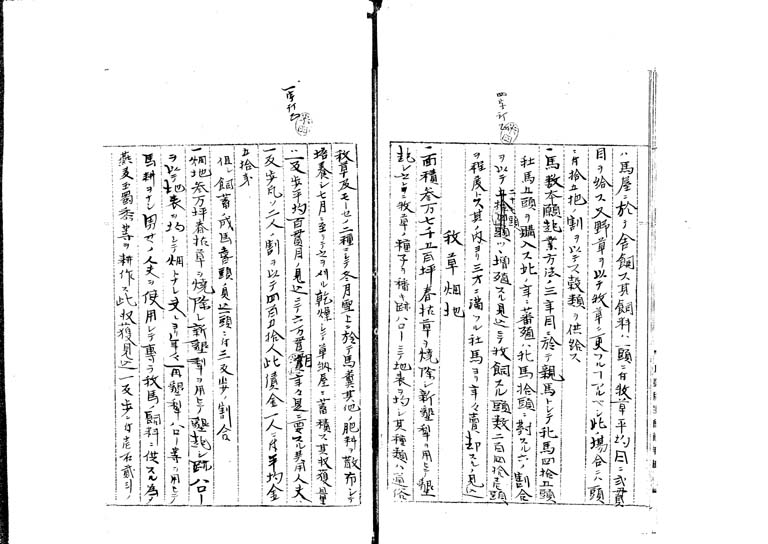 ハ馬屋ニ於テ舎飼ス其飼料ハ一頭ニ付牧草平均日ニ弐貫
目ヲ給ス又野草ヲ以テ牧草ニ更フルコアルベシ此場合ニハ一頭
ニ付拾五把ノ割ヲ以テス穀類ヲ供給ス
一馬数本願起業方法ノ三年目ニ於テ親馬トシテ牝馬四拾五頭
牡馬五頭ヲ購入ス此ノ年ニ蕃殖ハ牝馬拾頭ニ対スル六ノ割合
ヲ以テ二十七頭ツヽ増殖スル見込ニテ牧飼スル頭数二百四拾壱頭
ヲ程度トス其ノ内ヨリ三才ニ満ツル牡馬ヨリ年々売却スルノ見込
牧草畑地
一面積参万七千五百坪春枯草ヲ焼除シ新墾犂ヲ用ヒテ墾
起シ之ニ牧草ノ種子ヲ播キ跡ハローニテ地表ヲ均シ其種類ハ
四字訂正
牧草及モーセノ二種ニシテ冬月雪上ニ於テ馬糞其他ノ肥料ヲ散布シテ
培養シ七月ニ至リテ之ヲ刈リ乾燥シテ草納屋ニ蓄積ス其収獲量
ハ一反歩平均百貫目ノ見込ニテ六万貫目年々是ニ要スル男人夫
一反歩凡ソ二人ノ割ヲ以テ四百五拾人此債金一人ニ付平均金
五拾銭
但シ飼畜ノ成馬壱頭ノ見込一頭ニ付三反歩ノ割合
一畑地参万坪春枯草ヲ焼除シ新墾犂ヲ用ヒテ墾起シ跡ハロー
ヲ以テ地表ヲ均シテ畑トナシ又ハ年々再墾犂ハロー等ヲ用ヒテ
馬耕ヲセシ男女ノ人夫ヲ使用シテ専ラ牧馬飼料ニ供スル為メ
燕麦玉蜀黍等ヲ耕作ス此収獲見込一反歩ニ付壱石弐斗ノ
一字訂正